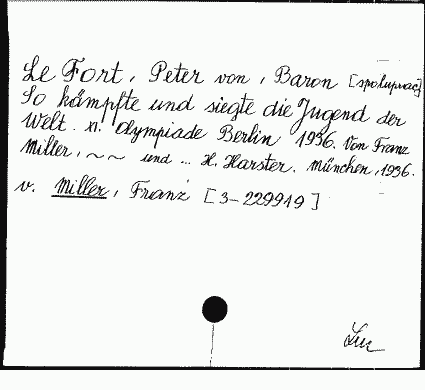 Le Fort, Peter von, Baron [spoluprac]
So kämpfte und siegte die Jugend der
Welt. XI. Olympiade Berlin 1936. Von Franz
Miller, ~ ~ und ... H. Harster. München, 1936.
v. Miller, Franz [3-229919]